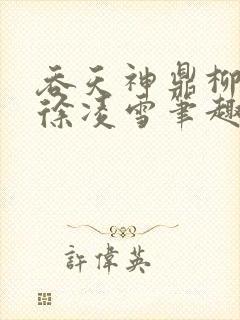 吞天神鼎柳
徐凌雪笔趣
許偉英